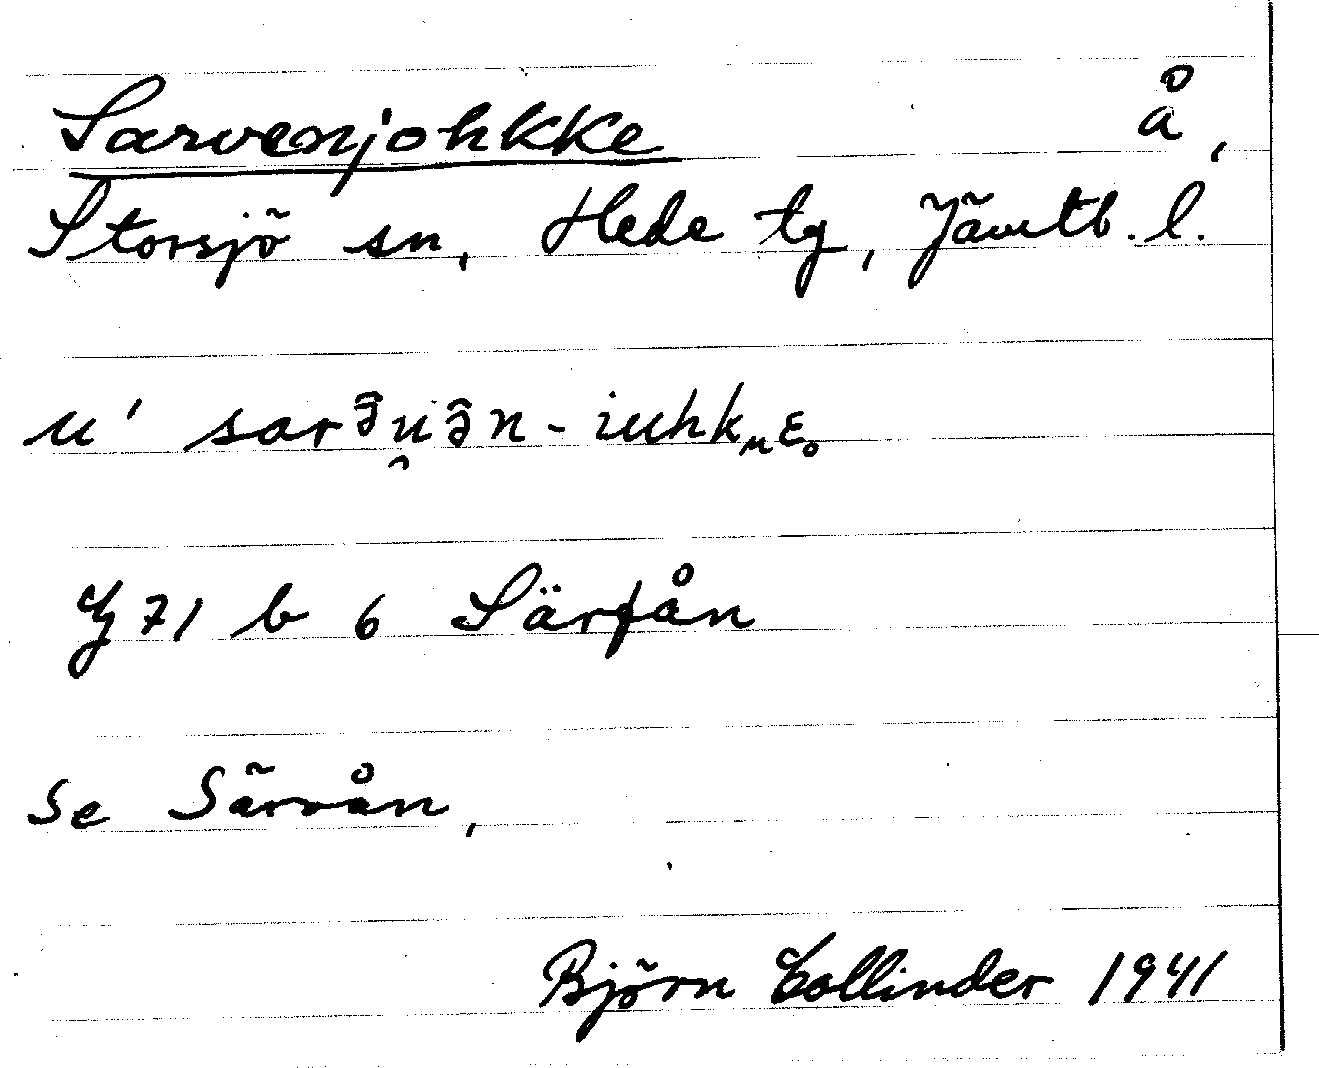 Sarvenjohkke å,
Storsjö sn, Hede tg, Jämtl. l.
u' sarə̑u̯ə̑n-iuhkᵤɛ₀
G 71 b 6 Särfån
Se Särvån,
Björn Collinder 1941